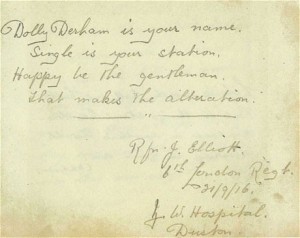 Dolly Derham is your name.
Single is your station.
Happy be the gentleman.
That makes the alteration.
Rfn. J. Elliott.
6th London Regt.
21/9/16.
W. Hospital.
Duston.